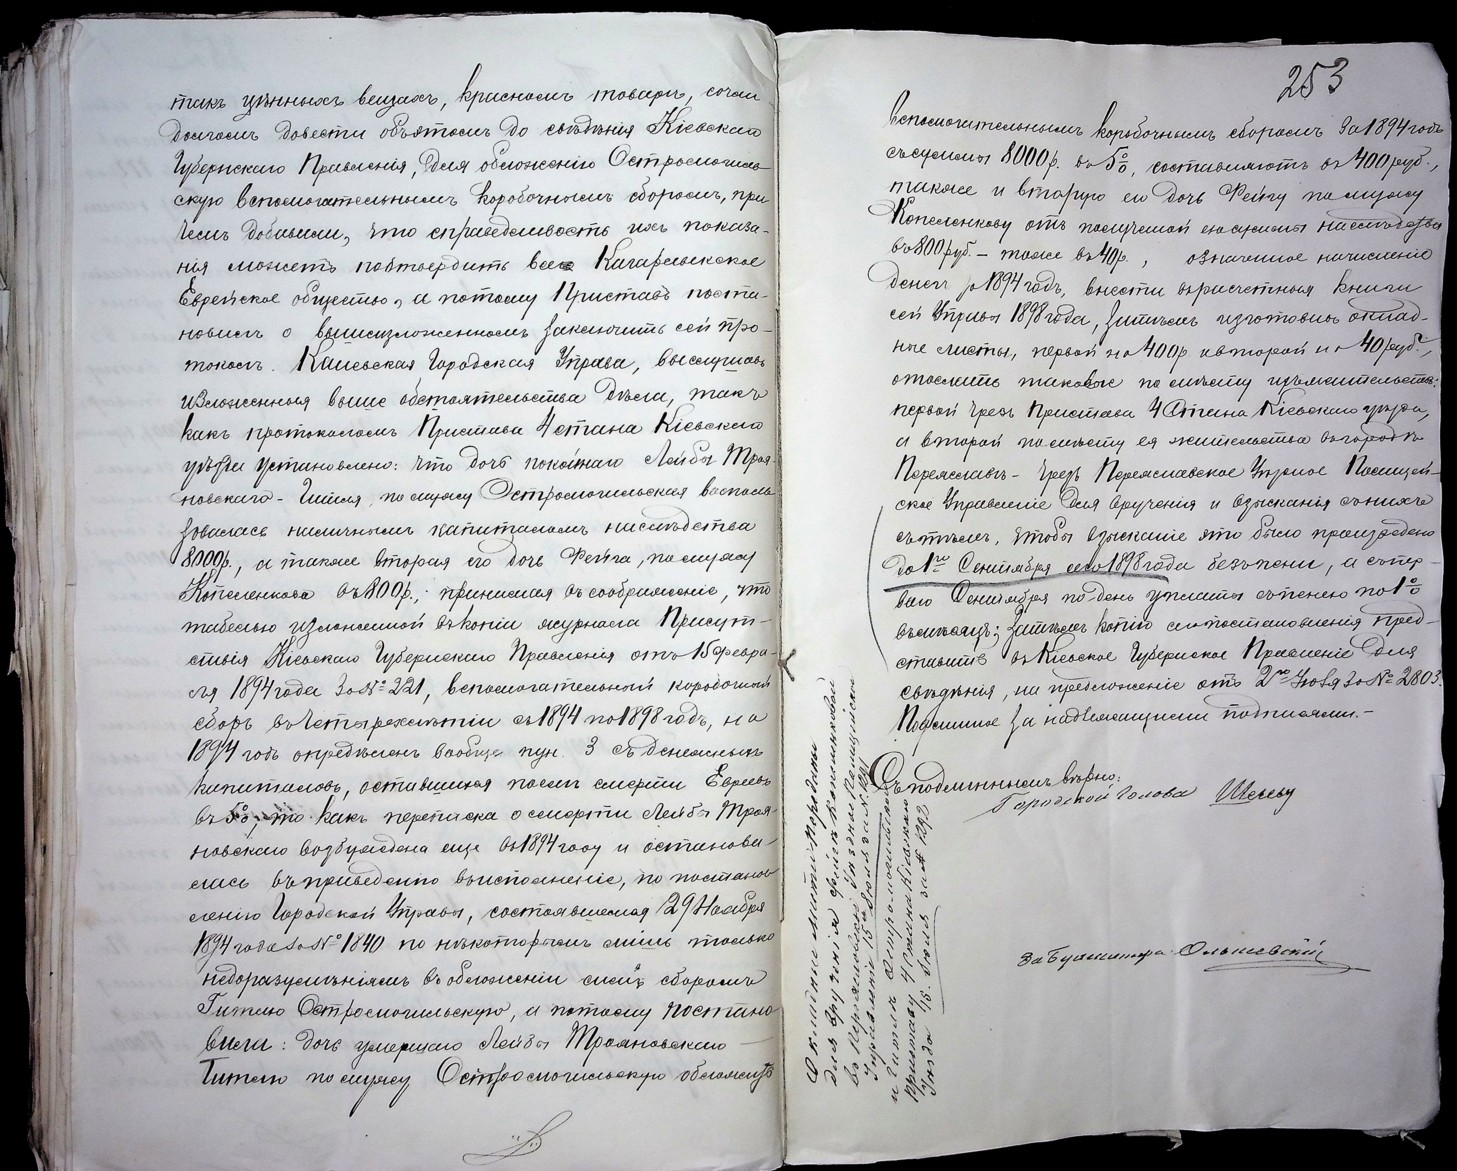 такъ цѣнныхъ вещахъ, красномъ товарѣ, сочли
долгомъ довести объ этомъ до свѣдѣнія Кіевскаго
Губернскаго Правленія, для обложенію Остромогиль-
скую вспомогательнымъ коробочнымъ сборомъ, при
чемъ добавили, что справедливость ихъ показа-
нія можетъ подтвердить все Кагарлыкское
Еврейское общество, а потому Приставъ поста-
новилъ о вышеизложенномъ заключить сей про-
токолъ. Каневская Городская Управа, выслушавъ
изложенныя выше обстоятельства дѣла, такъ
какъ протоколомъ Пристава 4 стана Кіевскаго
уѣзда установлено: что дочь покойнаго Лейбы Троя-
новскаго - Гитля, по мужу Остромогильская восполь-
зовалась наличнымъ капиталомъ наслѣдства
8000р., а также вторая его дочь Фейга, по мужу
Копеленкова въ 800р., принимая въ соображеніе, что
табелью изложенной въ копіи журнала Присут-
ствія Кіевскаго Губернскаго Правленія отъ 15 Февра-
ля 1894 года за № 221, вспомогательный коробочный
сборъ въ четырехлѣтіи съ 1894 по 1898 годъ, на
1894 годъ опредѣленъ вообще пун. 3 съ денежныхъ
капиталовъ, оставшихся послѣ смерти Евреевъ
въ 5%, то какъ переписка о смерти Лейбы Троя-
новскаго возбуждена еще въ 1894 году и останови-
лась въ приведенію въ исполненіе, по постанов
ленію Городской Управы, состоявшемся 29 Ноября
1894 года за № 1840 по нѣкоторымъ лишь только
недоразумѣніямъ въ обложеніи симъ сборомъ
Гитлю Остромогильскую, а потому постано
вила: дочь умершаго Лейбы Трояновскаго —
Гитлю по мужу Остромогильскую обложить
253
вспомогательнымъ коробочнымъ сборомъ за 1894 годъ
съ суммы 8000р. въ 5%, составляютъ въ 400 руб.,
также и вторую его дочь Фейгу по мужу
Копеленкову отъ полученной ею суммы наслѣдства
въ 800 руб. - тоже въ 40р., означенное начисленіе
денегъ за 1894 годъ, внести въ расчетныя книги
сей Управы 1898 года, затѣмъ изготовивъ оклад-
ные листы, первой на 400р. и второй на 40 руб.,
отослить таковые по мѣсту ихъ жительства:
первой чрезъ Пристава 4 Стана Кіевскаго уѣзда,
а второй по мѣсту ея жительства въ городѣ
Переяславъ - чрезъ Переяславское Уѣздное Полицей-
ское Управленіе для врученія и взысканія съ нихъ
съ тѣмъ, чтобы взысканіе это было произведено
до 1го Сентября сего 1898 года безъ пени, а съ пер-
ваго Сентября по день уплаты съ пенею по 1%
въ мѣсяцъ; затѣмъ копію сего постановленія пред-
ставить въ Кіевское Губернское Правленіе для
свѣдѣнія, на предложеніе отъ 2го Іюля за № 2803.
Подлинное за надлежащими подписями. -
Съ подлиннымъ вѣрно:
Городской Голова
За Бухгалтера Ольшевскій
Окладные листы переданы
для врученія Фейгѣ Копеленковой
въ Переяславское Уѣздное Полицейское
Управленіе 15 Іюля за №1291
и Гитлѣ Остромогильской
Приставу 4 стана Кіевскаго
Уѣзда 15 Іюля за № 1292